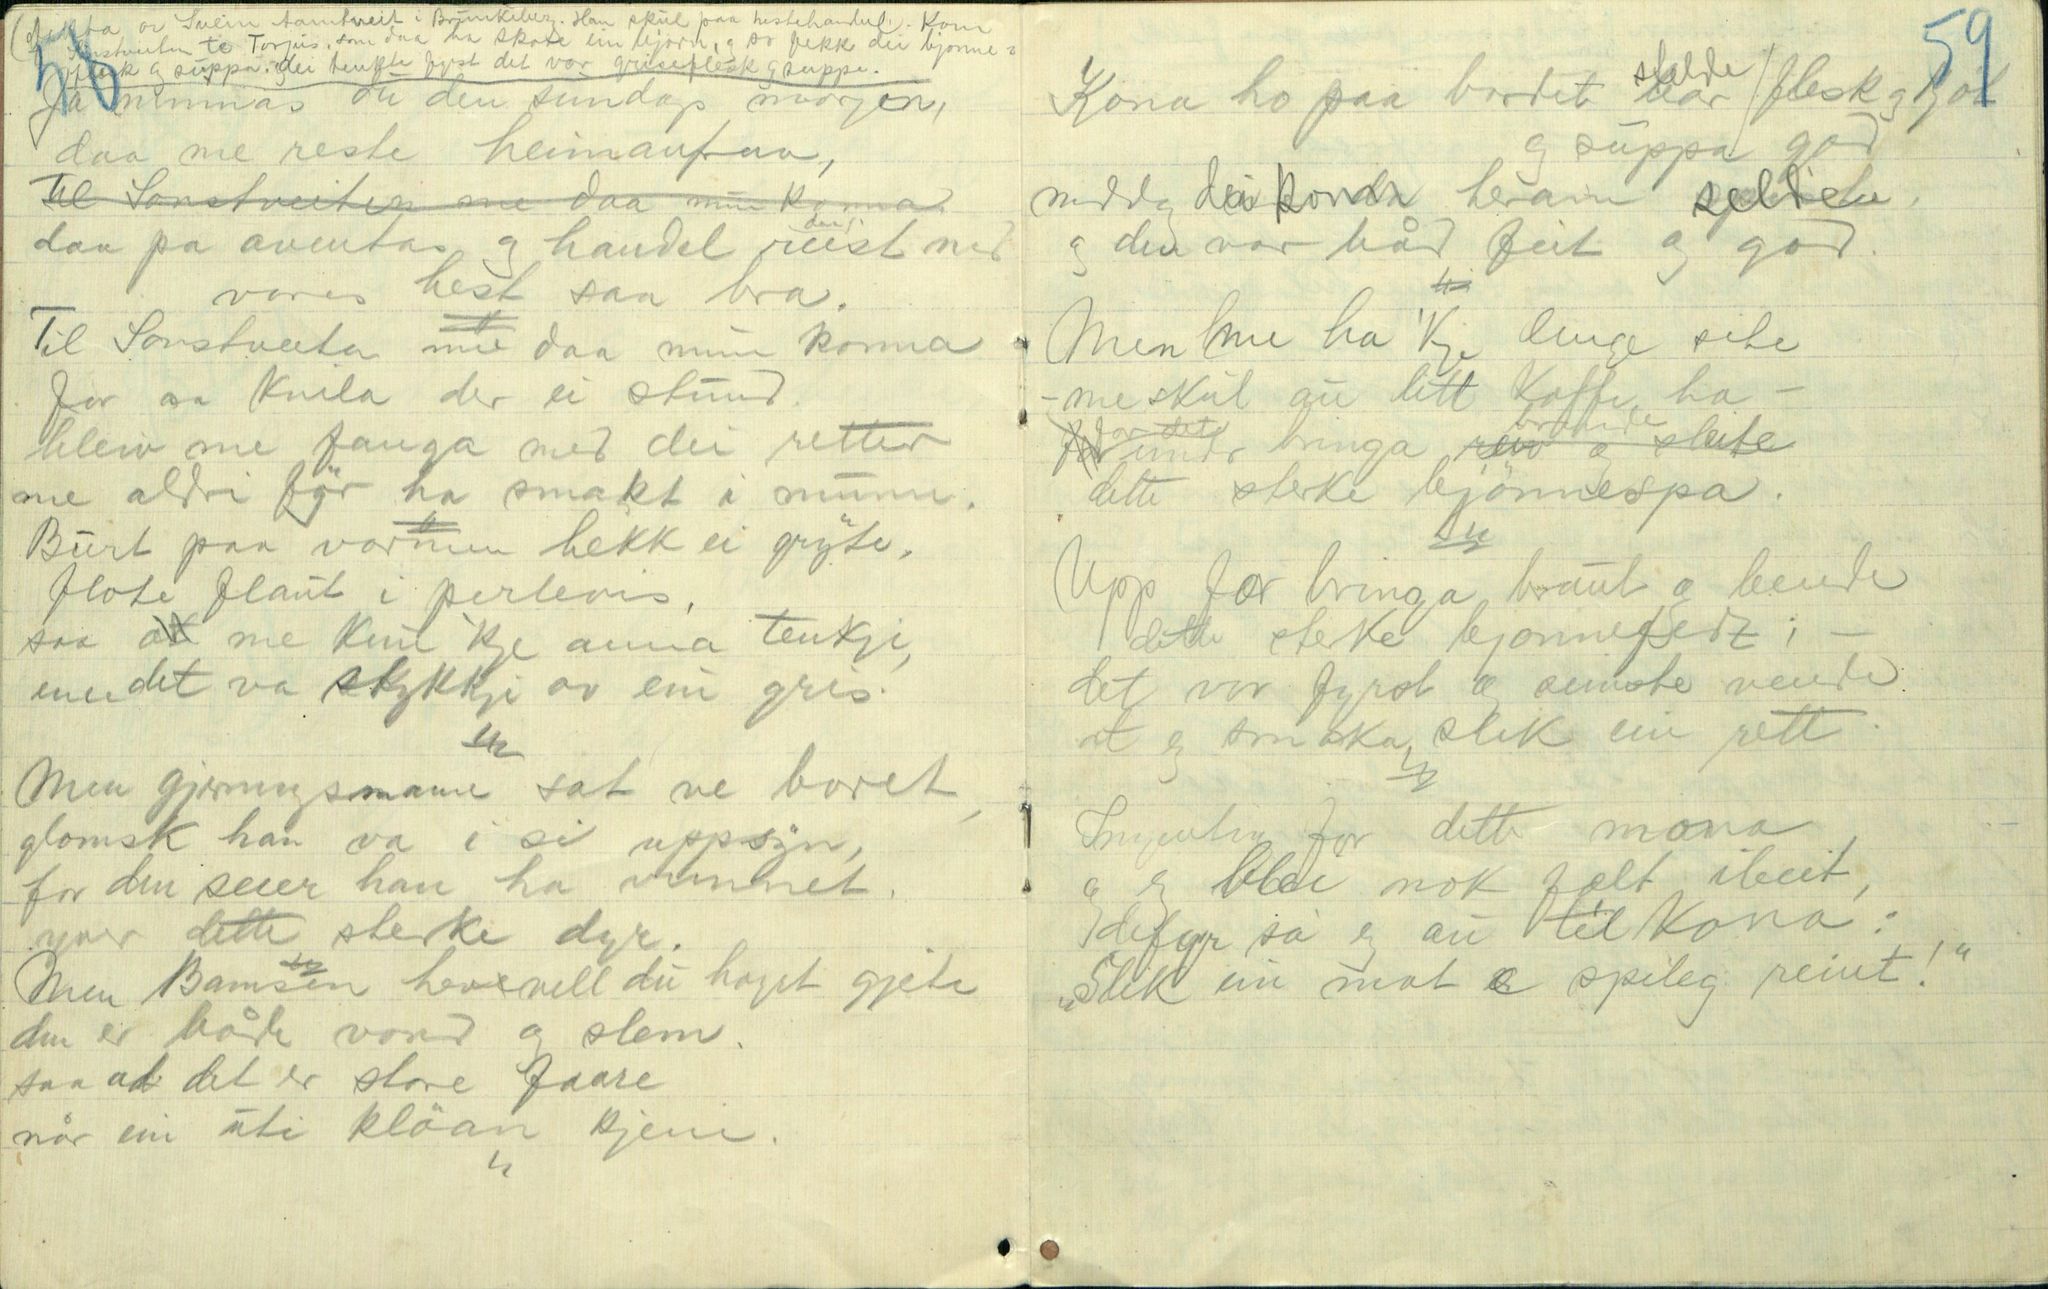 58
(dikta av Svein Aamtveit i Brunkeberg. Han skul paa hestehandel. Kom
Sonstveiten te Torjus, som daa ha skote ein bjørn, og so fekk dei bjønne-
flesk og suppa. Dei tenkte fyst det var griseflesk og suppe.
Ja minnas du den sundags morgen,
daa me reste heimanfraa,
Til Sonstveiten me daa mune komma
daa pa aventas og handel daa reist med
vores hest saa bra.
Til Sonstveita me daa mune komma
for aa kvila der ei stund.
bleiv me fanga med dei retter
me aldri før ha smakt i munn.
Burt paa varmen hekk ei gryte,
flote flaut i perlevis,
saa at me kun 'kje anna tenkje,
enn det va stykkje av ein gris.
Men gjerningsmann sat ve boret,
glomsk han va i si uppsyn,
for den seier han ha vunnet
yver dette sterke dyr.
Men Bamsen hev vell du høyet gjete
den er både vond og slem.
saa at det er store faare
når ein uti klöan kjem.
59
Kona ho paa bordet stelde bar flesk og kjöt
og suppa god
nedd dei konn herain seldiche
og den var båd feit og god.
Men me ha 'kje lenge sete
- me skul au litt kaffi ha -
før det undr bringa reiv brände og sleite
dette sterke bjönnespa.
Upp for bringa braut og bende
dette sterke bjonnefedt; -
det var fyrst og senste vende
at eg smaka slik ein rett.
Ingenting for dette mona
og eg blei nok falt ibeit,
defyr så eg au til kona:
"Slik ein mat e spileg reint!"